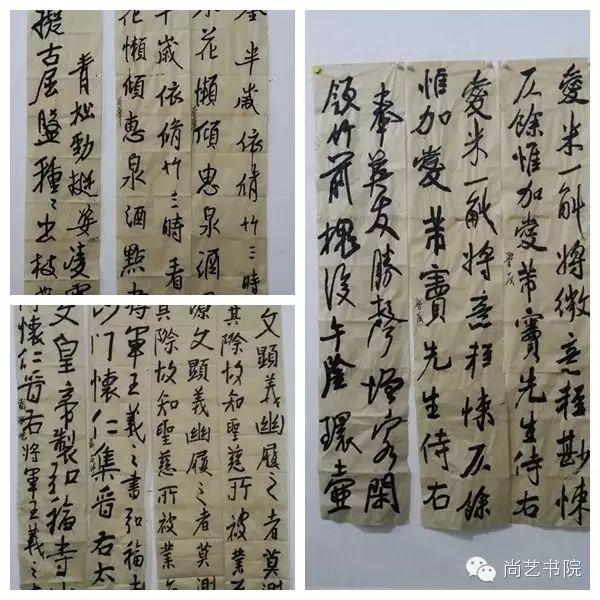 半歲依脩竹三時
花懶傾惠泉酒
歲依脩竹三時看
花懶傾惠泉酒點
青松勁挺姿凌霄
擬古屈盤種々出枝
文顯義幽履之者莫測
其際故知聖慈所被業
文顯義幽履之者莫測
其際故知聖慈所被業
將軍王羲之書弘福
門懷仁集晉右
文皇帝製弘福寺
懷仁晉右將軍王羲之
愛米一斛將微意輕尠悚
仄餘惟加愛芾竇先生侍右
愛米一斛將意輕悚仄餘
惟加愛芾竇先生侍右
友勝聲增容閑
領竹前槐後午陰環壺
尚艺书院